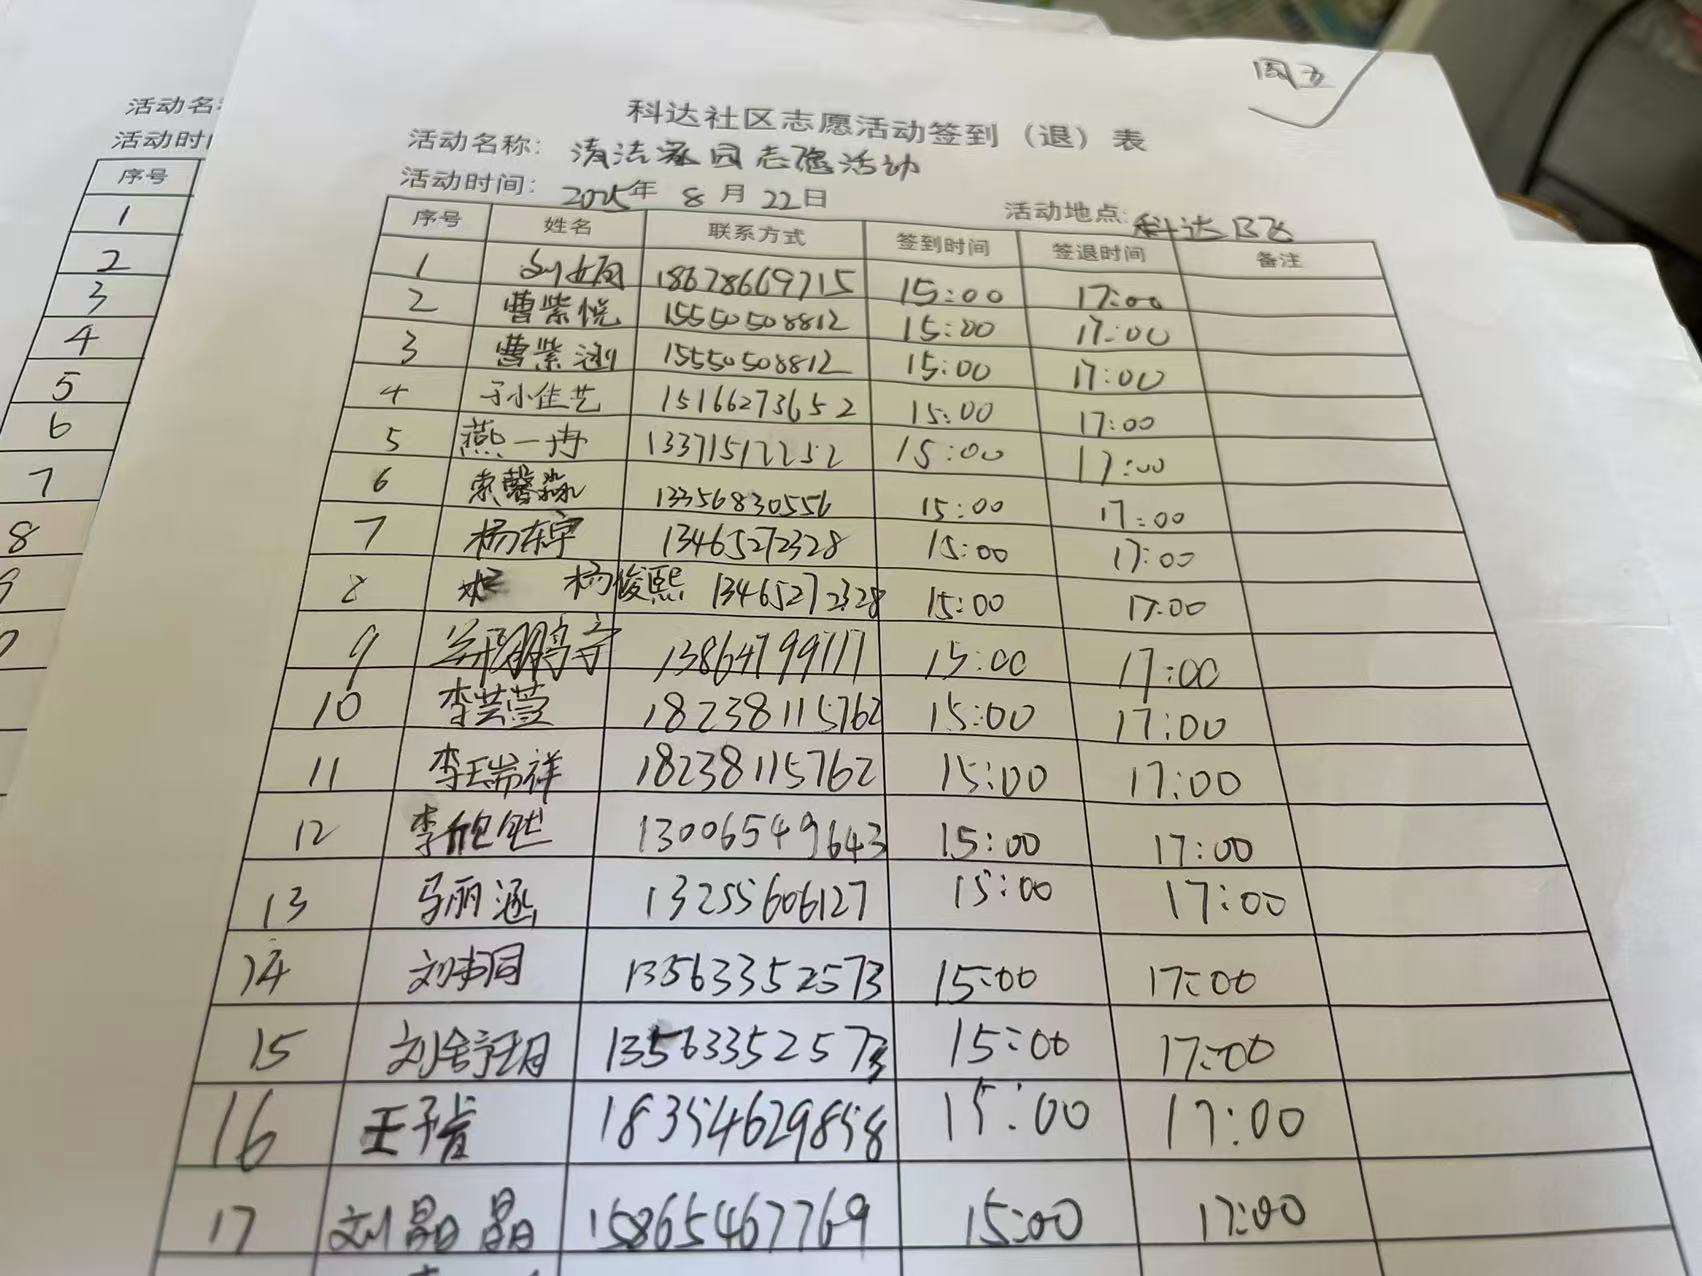 周五
科达社区志愿活动签到（退）表
活动名称：清洁家园志愿活动
活动时间：2025年 8月22日 活动地点:科达B飞
序号 姓名 联系方式 签到时间 签退时间 备注
1 18678669715 15:00 17:00
2 曹紫悦 15550508812 15:00 17:00
3 曹紫涵 15550508812 15:00 17:00
4 于小佳艺 15166273652 15:00 17:00
5 燕一冉 13371512252 15:00 17:00
6 索馨淼 13356830556 15:00 17:00
7 杨东宇 13465272328 15:00 17:00
8 杨俊熙 13465272328 15:00 17:00
9 13864799117 15:00 17:00
10 李芸萱 18238115762 15:00 17:00
11 李瑞祥 18238115762 15:00 17:00
12 13006549643 15:00 17:00
13 马丽涵 13255606127 15:00 17:00
14 13563352573 15:00 17:00
15 刘舒玥 13563352573 15:00 17:00
16 王子肯 18354629858 15:00 17:00
17 刘晶晶 15865467769 15:00 17:00
活动名
活动时
序号
1
2
3
4
5
6
7
8
9